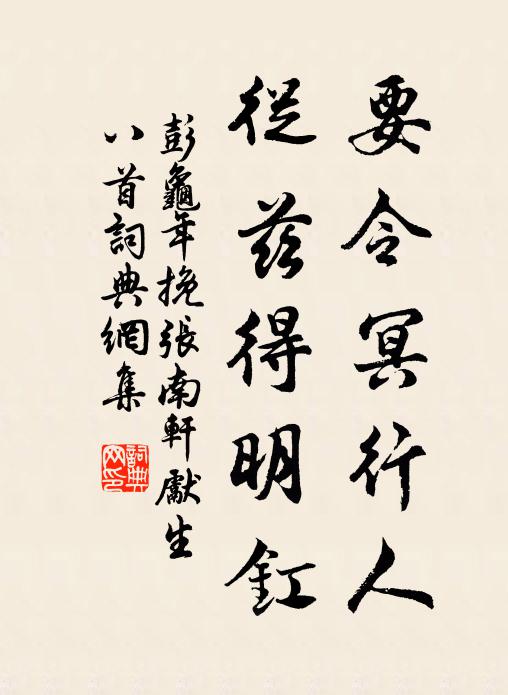 要令冥行人
從茲得明釭
彭龜年挽張南軒獻生
八首詞典網集
詞典网印